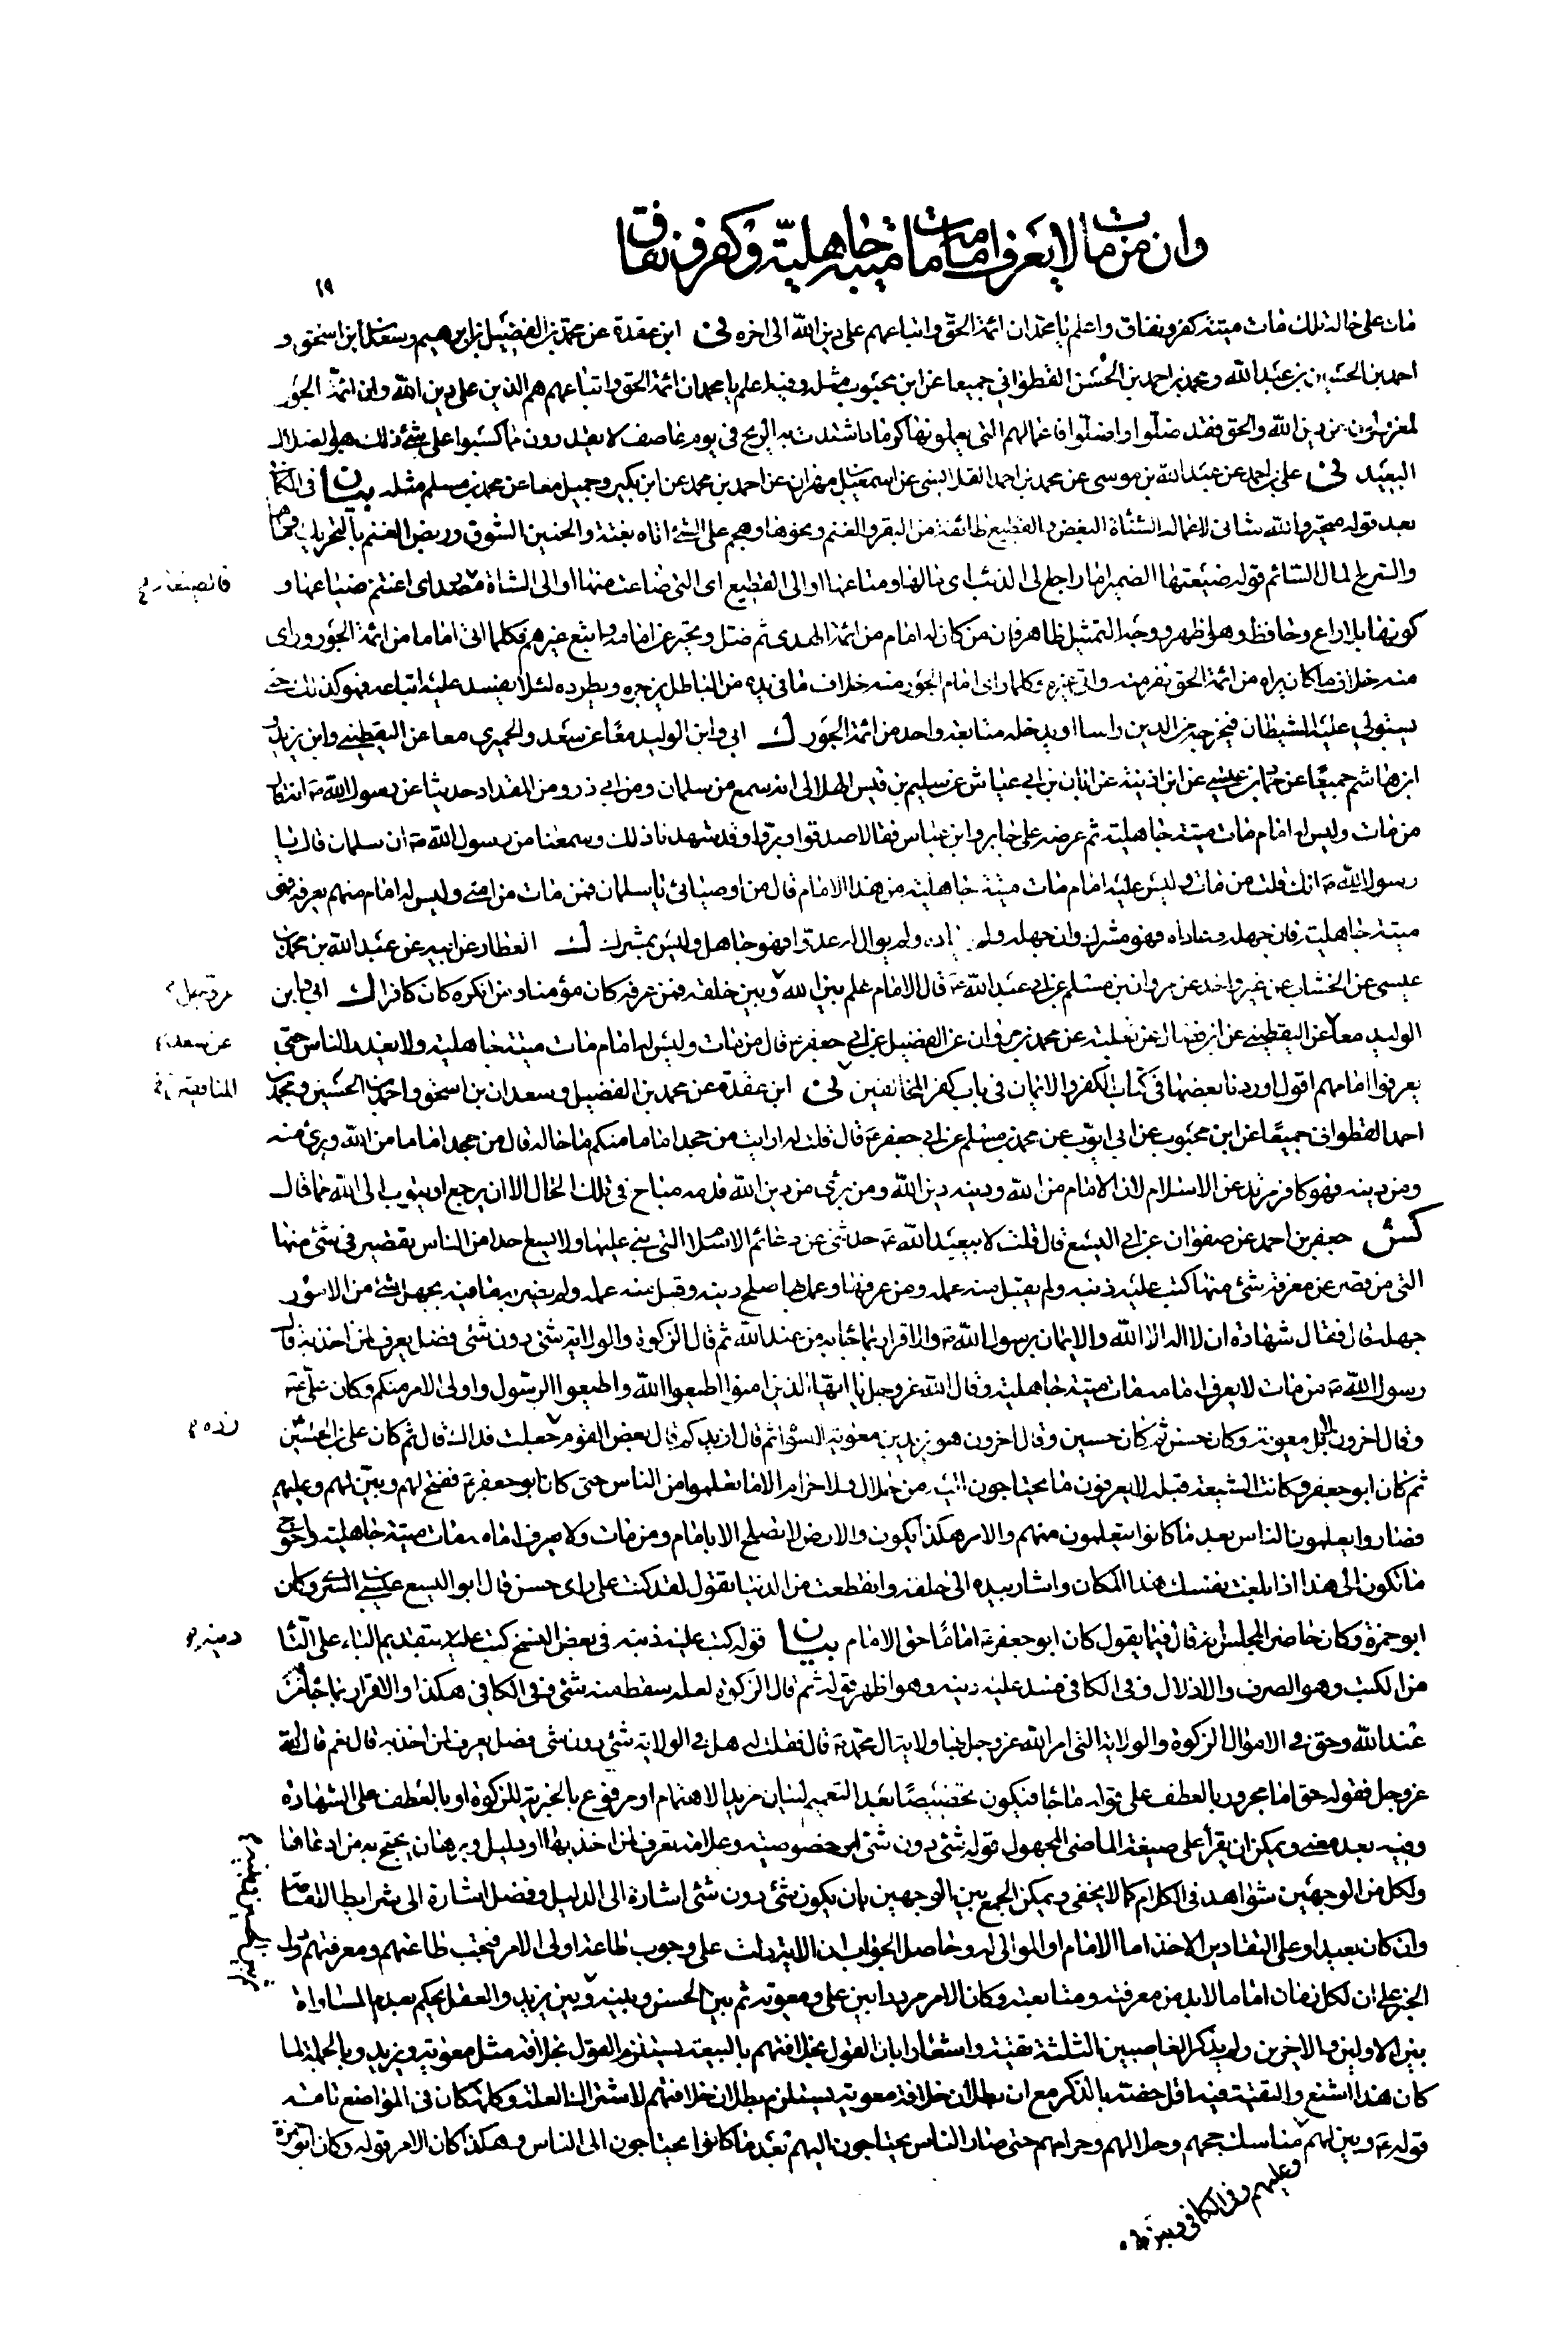 وان من مات لا يعرف امامه مات ميتة جاهلية وكفر ونفاق
١٩
مات على حاله تلك مات ميتة كفر ونفاق واعلم يا محمد ان ائمة الحق واتباعهم على دين الله الى اخره نى ابن عقدة عن محمد بن الفضيل بن ابرهيم وسعدان ابن اسحق و
احمد بن الحسين بن عبد الله ومحمد بن احمد بن الحسن القطواني جميعا عن ابن محبوب مثله وفيه اعلم يا محمد ان ائمة الحق واتباعهم هم الذين على دين الله وان ائمة الجور
لمعزولون عن دين الله والحق فقد ضلوا واضلوا فاعمالهم التي يعملونها كرماد اشتدت به الريح في يوم عاصف لا يقدرون مما كسبوا على شئ ذلك هو الضلال
البعيد نى على بن احمد عن عبيد الله بن موسى عن محمد بن احمد القلانسى عن اسمعيل بن مهران عن احمد بن محمد عن ابن بكير وجميل معا عن محمد بن مسلم مثله بيان في الكافى
بعد قوله متحير والله شانئ لاعماله الشنأة البغض والقطيع طائفة من البقر والغنم ونحوها وهجم على الشئ اتاه بغتة والحنين الشوق وربض الغنم بالتحريك
والسرح المال السائم قوله ضيعتها الضمير اما راجع الى الذئب اى مالها ومتاعها او الى القطيع اى التى ضاعت منها او الى الشاة مصدر اى اغتنم ضياعها و
فالضيعة
كونها بلا راع وحافظ وهو اظهر ووجه التمثيل ظاهر فان من كان له امام من ائمة الهدى ثم ضل وتحير عن امامه واتبع غيرهم فكلما اتى اماما من ائمة الجور وراى
منه خلاف ما كان يراه من ائمة الحق نفر منه واتى غيره وكلما راى امام الجور منه خلاف ما في يده من الباطل يزجره ويطرده لئلا يفسد عليه اتباعه فهو كذلك حتى
يستولي عليه الشيطان فيخرجه من الدين راسا او يدخله متابعة واحد من ائمة الجور ك ابي وابن الوليد معا عن سعد والحميري معا عن اليقطيني وابن يزيد و
ابن هاشم جميعا عن حماد بن عيسى عن ابن اذينة عن ابان بن ابي عياش عن سليم بن قيس الهلالى انه سمع من سلمان ومن ابي ذر ومن المقداد حديثا عن رسول الله ص انه قال
من مات وليس له امام مات ميتة جاهلية ثم عرضه على جابر وابن عباس فقالا صدقوا وبروا وقد شهدنا ذلك وسمعنا من رسول الله ص ان سلمان قال يا
رسول الله ص انك قلت من مات وليس عليه امام مات ميتة جاهلية من هذا الامام قال من اوصيائى يا سلمان فمن مات من امتى وليس له امام منهم يعرفه فهى
ميتة جاهلية فان جهله وعاداه فهو مشرك وان جهله ولم يعاده ولم يوال له عدوا فهو جاهل وليس بمشرك ك العطار عن ابيه عن عبد الله بن محمد بن
عيسى عن الخشاب عن غير واحد عن مروان بن مسلم عن ابي عبد الله ع قال الامام علم بين الله وبين خلقه فمن عرفه كان مؤمنا ومن انكره كان كافرا ك ابي وابن
عز وجل
الوليد معا عن اليقطيني عن ابن فضال عن ثعلبة عن محمد بن مروان عن الفضيل عن ابي جعفر ع قال من مات وليس له امام مات ميتة جاهلية ولا يعذر الناس حتى
عن سعد
يعرفوا امامهم اقول اوردنا بعضها في كتاب الكفر والايمان في باب كفر المخالفين نى ابن عقدة عن محمد بن الفضيل وسعدان بن اسحق واحمد بن الحسين ومحمد بن
احمد القطواني جميعا عن ابن محبوب عن ابى ايوب عن محمد بن مسلم عن ابي جعفر ع قال قلت له ارايت من جحد اماما منكم ما حاله قال من جحد اماما من الله وبرئ منه
ومن دينه فهو كافر مرتد عن الاسلام لان الامام من الله ودينه دين الله ومن برئ من دين الله فدمه مباح في تلك الحال الا ان يرجع او يتوب الى الله مما قال
كش جعفر بن احمد عن صفوان عن ابي اليسع قال قلت لابيعبد الله ع حدثنى عن دعائم الاسلام التى بنى عليها ولا يسع احدا من الناس تقصير في شئ منها
التى من قصر عن معرفة شئ منها كتب عليه ذنبه ولم يقبل منه عمله ومن عرفها وعمل بها صلح دينه وقبل منه عمله ولم يضر به ما فيه بجهل شئ من الامور
جهله قال فقال شهادة ان لا اله الا الله والايمان برسول الله ص والاقرار بما جاء به من عند الله ثم قال الزكوة والولاية شئ دون شئ فضل يعرف لمن اخذ به قال
رسول الله ص من مات لا يعرف امامه مات ميتة جاهلية وقال الله عز وجل يا ايها الذين امنوا اطيعوا الله واطيعوا الرسول واولى الامر منكم وكان على ع
وقال اخرون لا بل معوية وكان حسن ثم كان حسين وقال اخرون هو يزيد بن معوية لا سواء ثم قال ازيدك قال بعض القوم جعلت فداك قال ثم كان على بن الحسين
زده
ثم كان ابو جعفر وكانت الشيعة قبله لا يعرفون ما يحتاجون اليه من حلال ولا حرام الا ما تعلموا من الناس حتى كان ابو جعفر ع ففتح لهم وبين لهم وعلمهم
فصاروا يعلمون الناس بعد ما كانوا يتعلمون منهم والامر هكذا يكون والارض لا تصلح الا بامام ومن مات ولا يعرف امامه مات ميتة جاهلية واحوج
ما تكون الى هذا اذا بلغت نفسك هذا المكان واشار بيده الى حلقه وانقطعت من الدنيا تقول لقد كنت على راى حسن قال ابو اليسع عيسى بن السرى وكان
ابو حمزة وكان حاضر المجلس انه قال فيما يقول كان ابو جعفر ع اماما حق الامام بيان قوله كتب عليه ذنبه في بعض النسخ كبت عليه بتقديم الباء على التاء
من الكبت وهو الصرف والاذلال وفي الكافى فسد عليه دينه وهو اظهر قوله ثم قال الزكوة لعله سقط منه شئ وفي الكافي هكذا والاقرار بما جاء من
عند الله وحق في الاموال الزكوة والولاية التى امر الله عز وجل بها ولاية ال محمد ص قال فقلت له هل في الولاية شئ دون شئ فضل يعرف لمن اخذ به قال نعم قال الله
عز وجل فقوله حق اما مجرور بالعطف على قوله ما جاء فيكون تخصيصا بعد التعميم لبيان مزيد الاهتمام او مرفوع بالخبرية للزكوة او بالعطف على الشهادة
وفيه بعد معنى ويمكن ان يقرأ على صيغة الماضى المجهول قوله شئ دون شئ اى خصوصية وعلامة تعرف لمن اخذ بها او دليل وبرهان يحتج به من ادعاها
ولكل من الوجهين شواهد في الكلام كما لا يخفى ويمكن الجمع بين الوجهين بان يكون شئ دون شئ اشارة الى الدليل وفضل اشارة الى شرايط الامامة
وان كان بعيدا وعلى التقادير الاخذ اما الامام او الموالى له وحاصل الجواب ان الاية دلت على وجوب طاعة اولى الامر فيجب طاعتهم ومعرفتهم ودل
الخبر على ان لكل زمان اماما لا بد من معرفته ومتابعته وكان الامر مرددا بين على ومعوية ثم بين الحسن وبينه وبين يزيد والعقل يحكم بعدم المساواة
بين الاولين والاخرين ولم يذكر الغاصبين الثلثة تقية واشعارا بان القول بخلافتهم بالبيعة يستلزم القول بخلافة مثل معوية ويزيد وبالجملة لما
كان هذا اشنع والتقية فيه اقل خصه بالذكر مع ان بطلان خلافة معوية يستلزم بطلان خلافتهم لاشتراك العلة وكلمة كان في المواضع تامة
قوله ع وبين لهم مناسك حجهم وحلالهم وحرامهم حتى صار الناس يحتاجون اليهم بعد ما كانوا يحتاجون الى الناس وهكذا كان الامر قوله وكان ابو حمزة
وعلمهم وفي الكافي وبين لهم